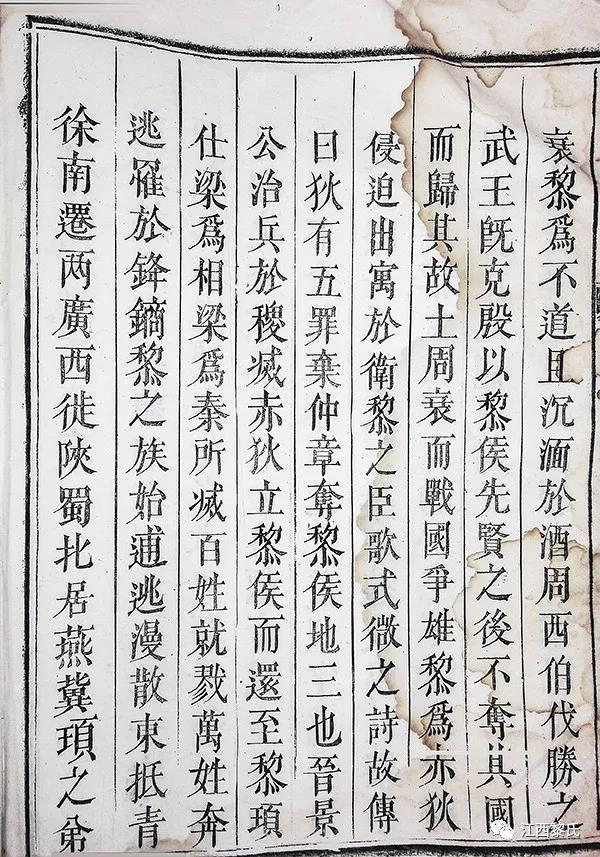 衰黎爲不道且沉湎於酒周西伯伐勝之
武王旣克殷以黎侯先賢之後不奪其國
而歸其故土周衰而戰國爭雄黎爲赤狄
侵迫出寓於衛黎之臣歌式微之詩故傳
曰狄有五罪棄仲章奪黎侯地三也晉景
公治兵於稷滅赤狄立黎侯而還至黎頊
仕梁爲相梁爲秦所滅百姓就戮萬姓奔
逃罹於鋒鏑黎之族始逋逃漫散東抵青
徐南遷两廣西徙陝蜀北居燕冀頊之弟
江西黎氏